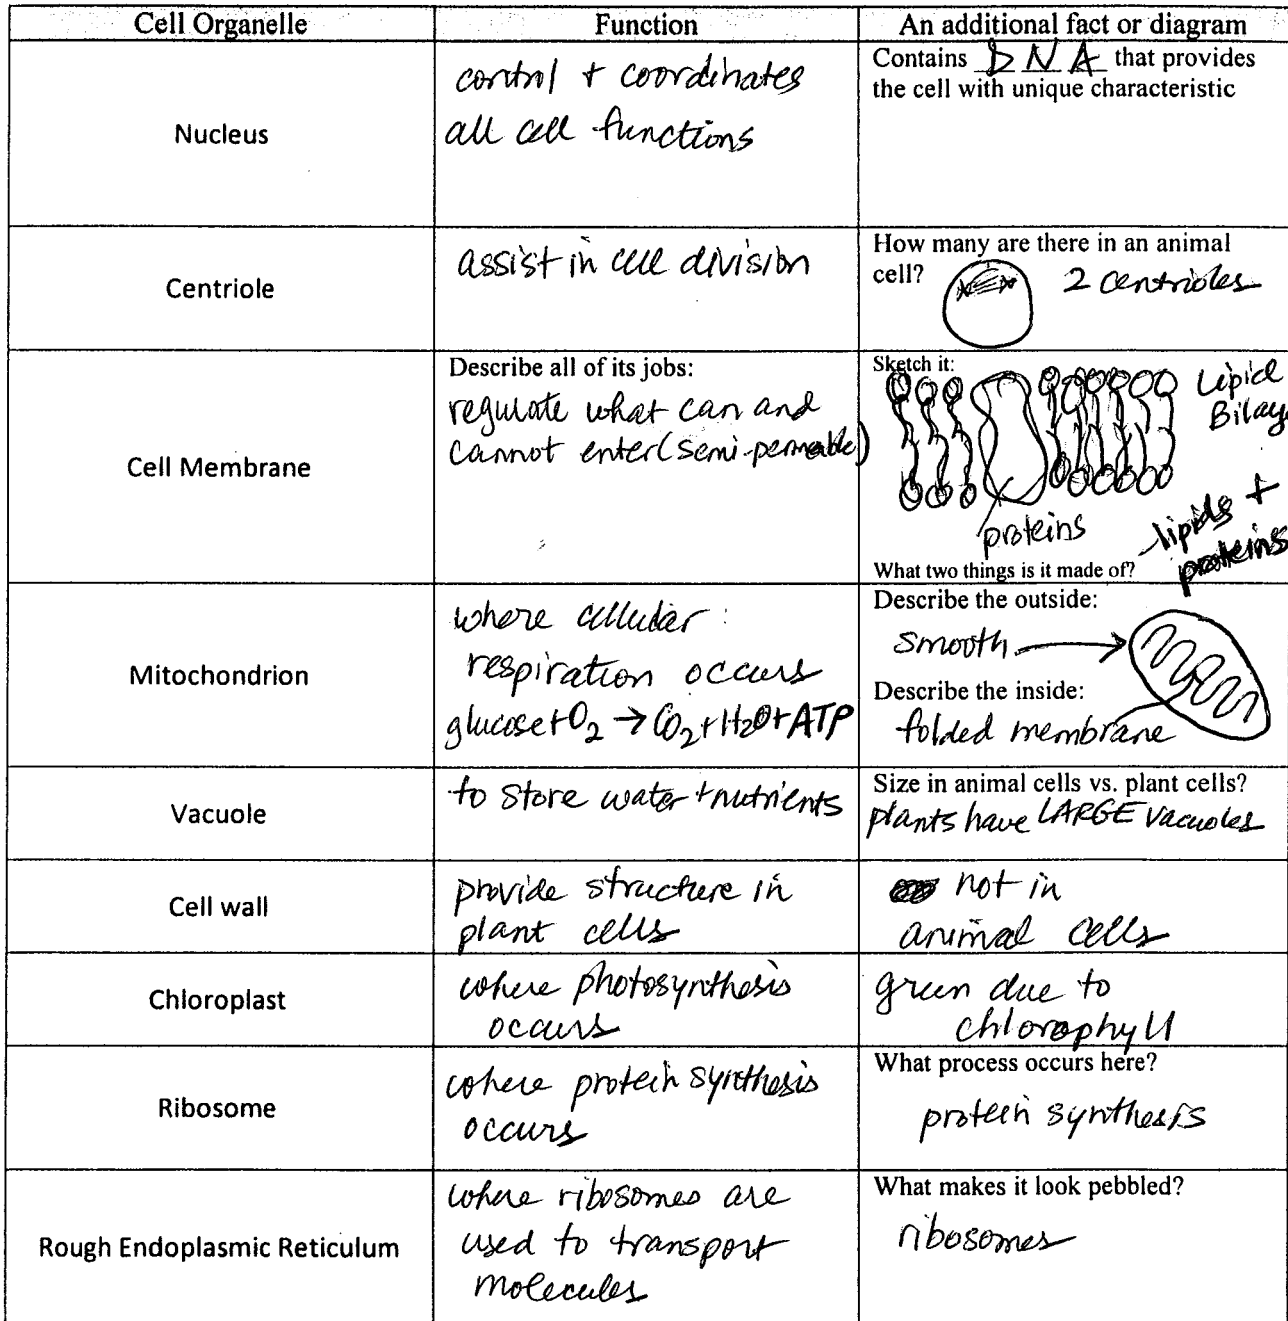 Cell Organelle
Function
An additional fact or diagram
Nucleus
control + coordinates
all cell functions
Contains DNA that provides
the cell with unique characteristic
Centriole
assist in cell division
How many are there in an animal
cell?
2 centrioles
Cell Membrane
Describe all of its jobs:
regulate what can and
cannot enter (semi-permeable)
Sketch it:
Lipid
Bilay
proteins
What two things is it made of?
lipids +
proteins
Mitochondrion
where cellular
respiration occurs
glucose + O₂ → CO₂ + H₂O + ATP
Describe the outside:
smooth
Describe the inside:
folded membrane
Vacuole
to store water + nutrients
Size in animal cells vs. plant cells?
plants have LARGE vacuoles
Cell wall
provide structure in
plant cells
not in
animal cells
Chloroplast
where photosynthesis
occurs
green due to
chlorophyll
Ribosome
where protein synthesis
occurs
What process occurs here?
protein synthesis
Rough Endoplasmic Reticulum
where ribosomes are
used to transport
molecules
What makes it look pebbled?
ribosomes